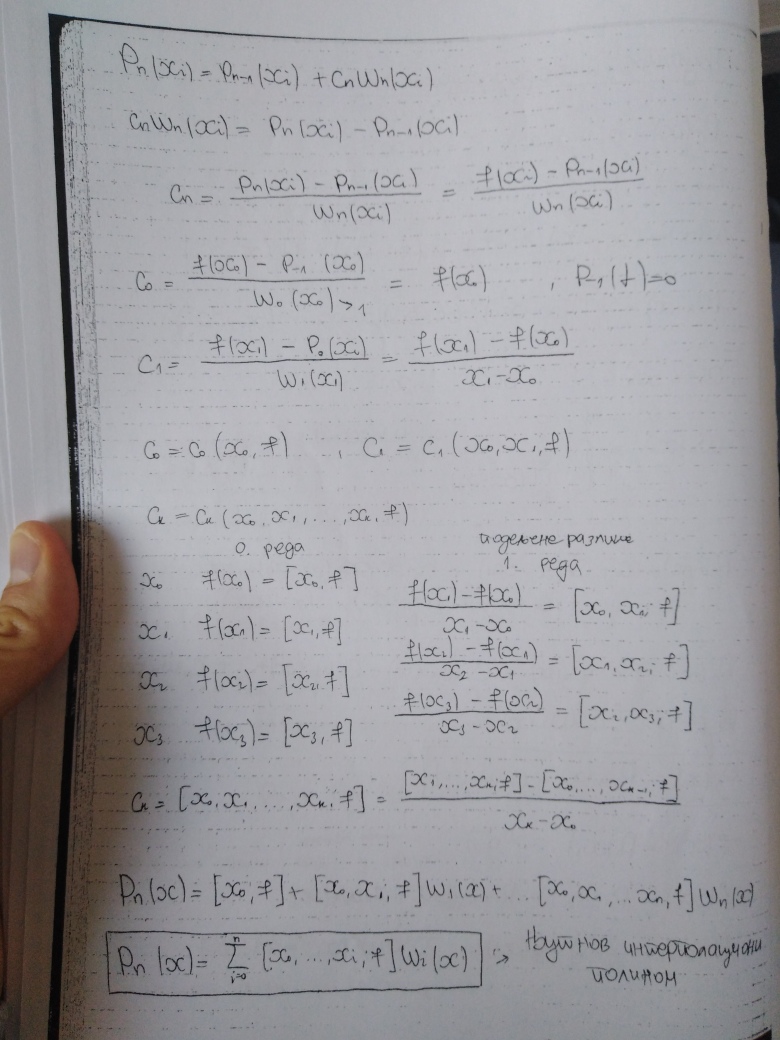 Pn(xi) = Pn-1(xi) + CnWn(xi)
CnWn(xi) = Pn(xi) - Pn-1(xi)
Cn = (Pn(xi) - Pn-1(xi)) / Wn(xi) = (f(xi) - Pn-1(xi)) / Wn(xi)
C0 = (f(x0) - P-1(x0)) / W0(x0)→1 = f(x0) , P-1(f)=0
C1 = (f(x1) - P0(x1)) / W1(x1) = (f(x1) - f(x0)) / (x1-x0)
C0 = C0(x0, f) , C1 = C1(x0, x1, f)
Ck = Ck(x0, x1, ..., xk, f)
0. реда подељене разлике 1. реда
x0 f(x0) = [x0, f] (f(x1) - f(x0)) / (x1-x0) = [x0, x1; f]
x1 f(x1) = [x1, f] (f(x2) - f(x1)) / (x2-x1) = [x1, x2; f]
x2 f(x2) = [x2, f] (f(x3) - f(x2)) / (x3-x2) = [x2, x3; f]
x3 f(x3) = [x3, f]
Ck = [x0, x1, ..., xk, f] = ([x1, ..., xk; f] - [x0, ..., xk-1; f]) / (xk-x0)
Pn(x) = [x0, f] + [x0, x1, f]W1(x) + ... [x0, x1, ... xn, f]Wn(x)
Pn(x) = Σ i=0 n [x0, ..., xi; f]Wi(x) → Њутнов интерполациони
полином